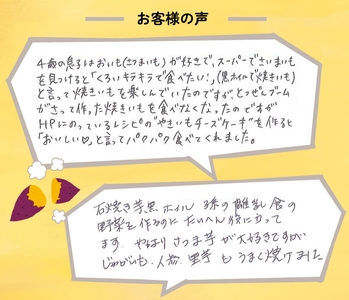 お客様の声
4歳の息子はおいも(さつまいも)が好きで、スーパーでさいまいも
を見つけると「くろいキラキラで食べたい!」(黒ホイルで焼きいも)
と言って焼きいもを楽しんでいたのですが、とつぜんブーム
がさって作った焼きいもを食べなくなったのですが
HPにのっているレシピの"やきいもチーズケーキ"を作ると
「おいしい♡」と言ってパクパク食べてくれました。
石焼き芋黒ホイル 孫の離乳食の
野菜を作るのに たいへん役に立って
ます やはり さつま芋が大好きですが
じゃがいも、人参、里芋 も うまく焼けました